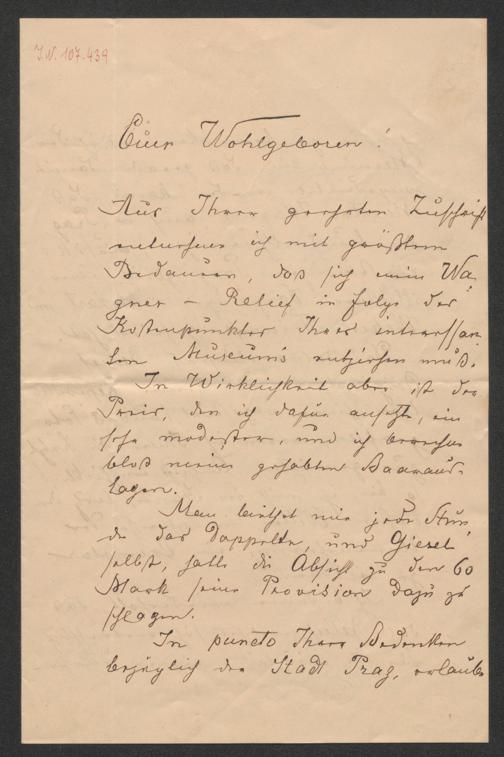 I.N. 107.439
Euer Wohlgeboren!
Aus Ihrer geehrten Zuschrift
entnehme ich mit größtem
Bedauern, daß sich mein Wa-
gner - Relief in folge des
Kostenpunktes Ihres interessan-
ten Museums entziehen muß.
In Wirklichkeit aber ist der
Preis, den ich dafür ansetzte, ein
sehr modester, und ich berechne
bloß meine gehabten Baaraus-
lagen.
Man biethet mir jede Stun-
de das Doppelte, und Giesel
selbst, hatte die Absicht zu den 60
Mark seine Provision dazu zu
schlagen.
In puncto Ihrer Bedenken
bezüglich der Stadt Prag, erlaube